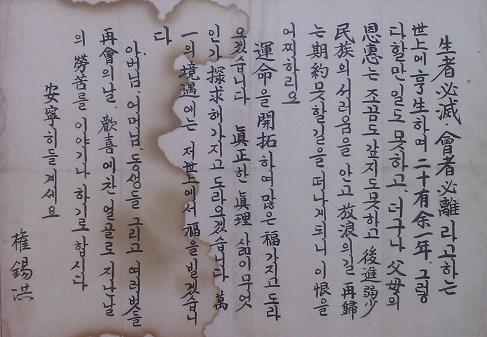 生者必滅 會者必離 라고하는
世上에 享生하며 二十有余年, 그렇
다할만 일도 못하고 더구나 父母의
恩惠는 조끔도 갚지도못하고 後進弱少
民族의 서러움을 안고 放浪의길 再歸
는 期約못할길을 떠나게되니 이 恨을
어찌하리요
運命을 開拓하여 많은 福 가지고 도라
오겠습니다 眞正한 眞理 삶이 무엇
인가 探求해가지고 도라오겠습니다 萬
一의 境遇에는 저世上에서 福을 빌겠습니
다
아버님, 어머님, 동생들 그리고 여러분들
再會의날, 歡喜에찬 얼골로 지난날
의 勞苦를 이야기나 하기로 합시다
安寧히들 계세요
權錫洪